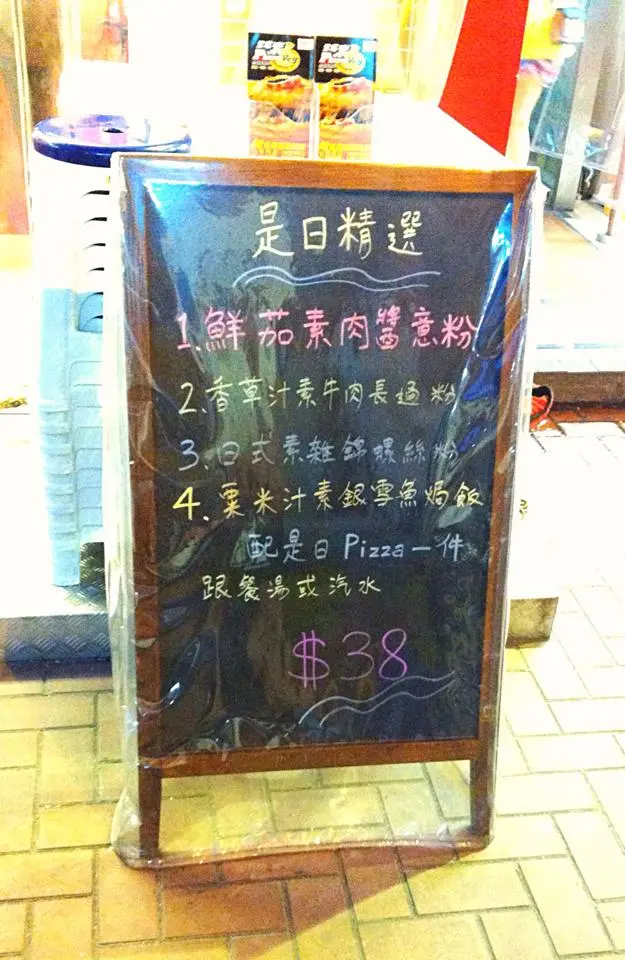 是日精選
1.鮮茄素肉醬意粉
2.香草汁素牛肉長通粉
3.日式素雜錦螺絲粉
4.粟米汁素銀雪魚焗飯
配是日Pizza一件
跟餐湯或汽水
$38